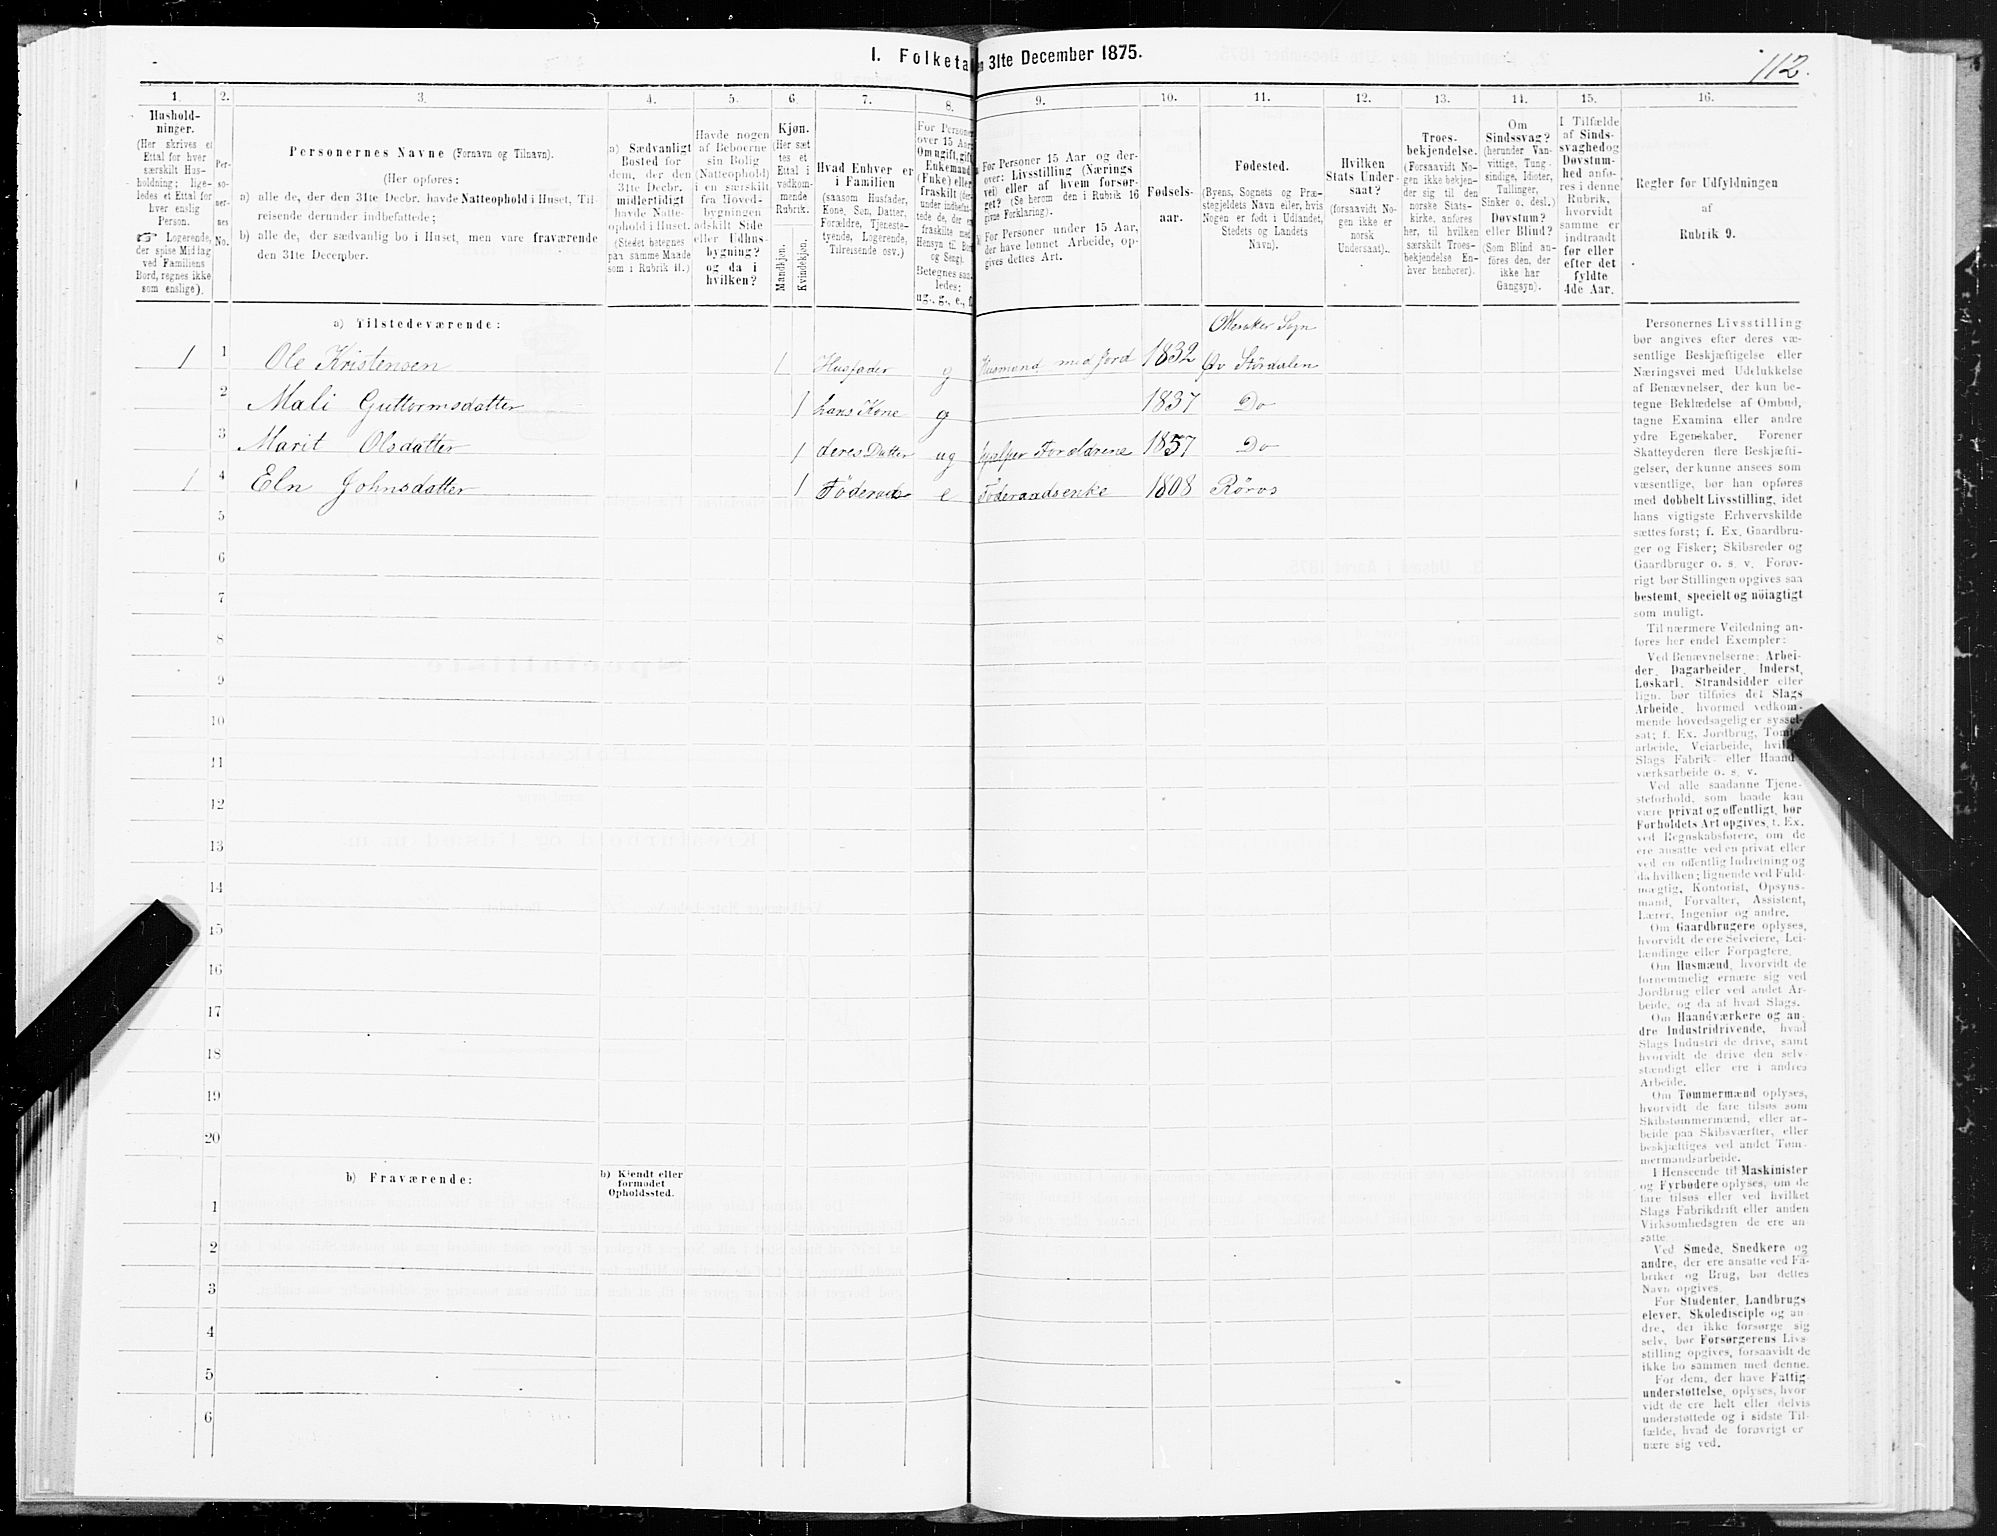 I. Folketa n 31te December 1875.
112.
1. 2. 3. 4. 5. 6. 7. 8. 9. 10. 11. 12. 13. 14. 15. 16.
Hushold-
ninger.
(Her skrives et
Ettal for hver
særskilt Hus-
holdning; lige-
ledes et Ettal for
hver enslig
Person.
☞ Logerende,
der spise Middag
ved Familiens
Bord, regnes ikke
som enslige).
Per-
so-
ner-
nes
No.
Personernes Navne (Fornavn og Tilnavn).
(Her opføres:
a) alle de, der den 31te Decbr. havde Natteophold i Huset, Til-
reisende derunder indbefattede;
b) alle de, der sædvanlig bo i Huset, men vare fraværende
den 31te December.
a) Sædvanligt
Bosted for
dem, der den
31te Decbr.
midlertidigt
havde Natte-
ophold i Huset.
(Stedet betegnes
paa samme Maade
som i Rubrik 11.)
Havde nogen
af Beboerne
sin Bolig
(Natteophold)
i en særskilt
fra Hoved-
bygningen
adskilt Side
eller Udhus-
bygning?
og da i
hvilken?
Kjøn.
(Her sæt
tes et
Ettal i
vedkom-
mende
Rubrik.
Mandkjøn.
Kvindekjøn.
Hvad Enhver er
i Familien
(saasom Husfader,
Kone, Søn, Datter,
Forældre, Tjeneste-
tyende, Logerende,
Tilreisende osv.)
For Personer
over 15 Aar:
Om ugift, gift,
Enkemand
(Enke) eller
fraskilt (der-
under indbefat-
tede de, der ere
fraskilte med
Hensyn til Bord
og Seng).
Betegnes saa-
ledes:
ug., g., e., f.
For Personer 15 Aar og der-
over: Livsstilling (Nærings
vei) eller af hvem forsør-
get? (Se herom den i Rubrik 16
givne Forklaring).
For Personer under 15 Aar,
der have lønnet Arbeide, op-
gives dettes Art.
Fødsels-
aar.
Fødested.
(Byens, Sognets og Præ-
stegjeldets Navn eller, hvis
Nogen er født i Udlandet,
Stedets og Landets
Navn).
Hvilken
Stats Under-
saat?
(forsaavidt No-
gen ikke er
norsk
Undersaat).
Troes-
bekjendelse.
(Forsaavidt No-
gen ikke bekjen-
der sig til den
norske Stats-
kirke, anføres
her, til hvilken
særskilt Troes-
bekjendelse En-
hver henhører).
Om
Sindssvag?
(herunder Van-
vittige, Tung-
sindige, Idioter,
Tullinger,
Sinker o. desl.)
Døvstum?
eller Blind?
(Som Blind an-
føres den, der
ikke har
Gangsyn).
I Tilfælde
af Sinds-
svaghed og
Døvstum-
hed anfø-
res i denne
Rubrik,
hvorvidt
samme er
indtraadt
før eller
efter det
fyldte
4de Aar.
Regler for Udfyldningen
af
Rubrik 9.
a) Tilstedeværende:
Meraker Sogn
1 1 Ole Kristensen 1 Husfader g Husmand med Jord 1832 Öv Stördalen
2 Mali Guttormsdatter 1 hans Kone g 1837 Do
3 Marit Olsdatter 1 deres Datter ug hjælper Forældrene 1857 Do
1 4 Eln Johnsdatter 1 Föderaads e Föderaadsenke 1808 Röros
5
6
7
8
9
10
11
12
13
14
15
16
17
18
19
20
b) Fraværende:
b) Kjendt eller
formodet
Opholdssted.
1
2
3
4
5
6
Personernes Livsstilling
bør angives efter deres væ-
sentlige Beskjæftigelse eller
Næringsvei med Udelukkelse
af Benævnelser, der kun be-
tegne Beklædelse af Ombud,
tagne Examina eller andre
ydre Egenskaber. Forener
Skatteyderen flere Beskjæfti-
gelser, der kunne ansees som
væsentlige, bør han opføres
med dobbelt Livsstilling, idet
hans vigtigste Erhvervskilde
sættes først; f. Ex. Gaardbru-
ger og Fisker; Skibsreder og
Gaardbruger o. s. v. Forøv-
rigt bør Stillingen opgives saa
bestemt, specielt og nöiagtigt
som muligt.
Til nærmere Veiledning an-
føres her endel Exempler:
Ved Benævnelserne: Arbei-
der, Dagarbeider, Inderst,
Løskarl, Strandsidder eller
lign. bør tilføies det Slags
Arbeide, hvormed vedkom-
mende hovedsagelig er syssel-
sat; f. Ex. Jordbrug, Tomte-
arbeide, Veiarbeide, hvilket
Slags Fabrik- eller Haand-
værksarbeide o. s. v.
Ved alle saadanne Tjene-
steforhold, som baade kan
være privat og offentligt, bør
Forholdets Art opgives, t. Ex.
ved Regnskabsførere, om de
ere ansatte ved en privat eller
ved en offentlig Indretning og
da hvilken; lignende ved Fuld-
mægtig, Kontorist, Opsyns-
mand, Forvalter, Assistent,
Lærer, Ingeniør og andre.
Om Gaardbrugere oplyses,
hvorvidt de ere Selveiere, Lei-
lændinge eller Forpagtere.
Om Husmænd, hvorvidt de
fornemmelig ernære sig ved
Jordbrug eller ved andet Ar-
beide, og da af hvad Slags.
Om Haandværkere og an-
dre Industridrivende, hvad
Slags Industri de drive, samt
hvorvidt de drive den selv-
stændigt eller ere i andres
Arbeide.
Om Tømmermænd oplyses,
hvorvidt de fare tilsøs som
Skibstømmermænd, eller ar-
beide paa Skibsværfter, eller
beskjæftiges ved andet Tøm-
mermandsarbeide.
I Henseende til Maskinister
og Fyrbødere oplyses, om de
fare tilsøs eller ved hvilket
Slags Fabrikdrift eller anden
Virksomhedsgren de ere an-
satte.
Ved Smede, Snedkere og
andre, der ere ansatte ved Fa-
briker og Brug, bør dettes
Navn opgives.
For Studenter, Landbrugs
elever, Skoledisciple og an-
dre, der ikke forsørge sig
selv, bør Forsørgerens Livs-
stilling opgives, forsaavidt de
ikke bo sammen med denne.
For dem, der have Fattig-
understøttelse, oplyses, hvor
vidt de ere helt eller delvis
understøttede og i sidste Til-
fælde, hvad de forøvrigt er
nære sig ved.